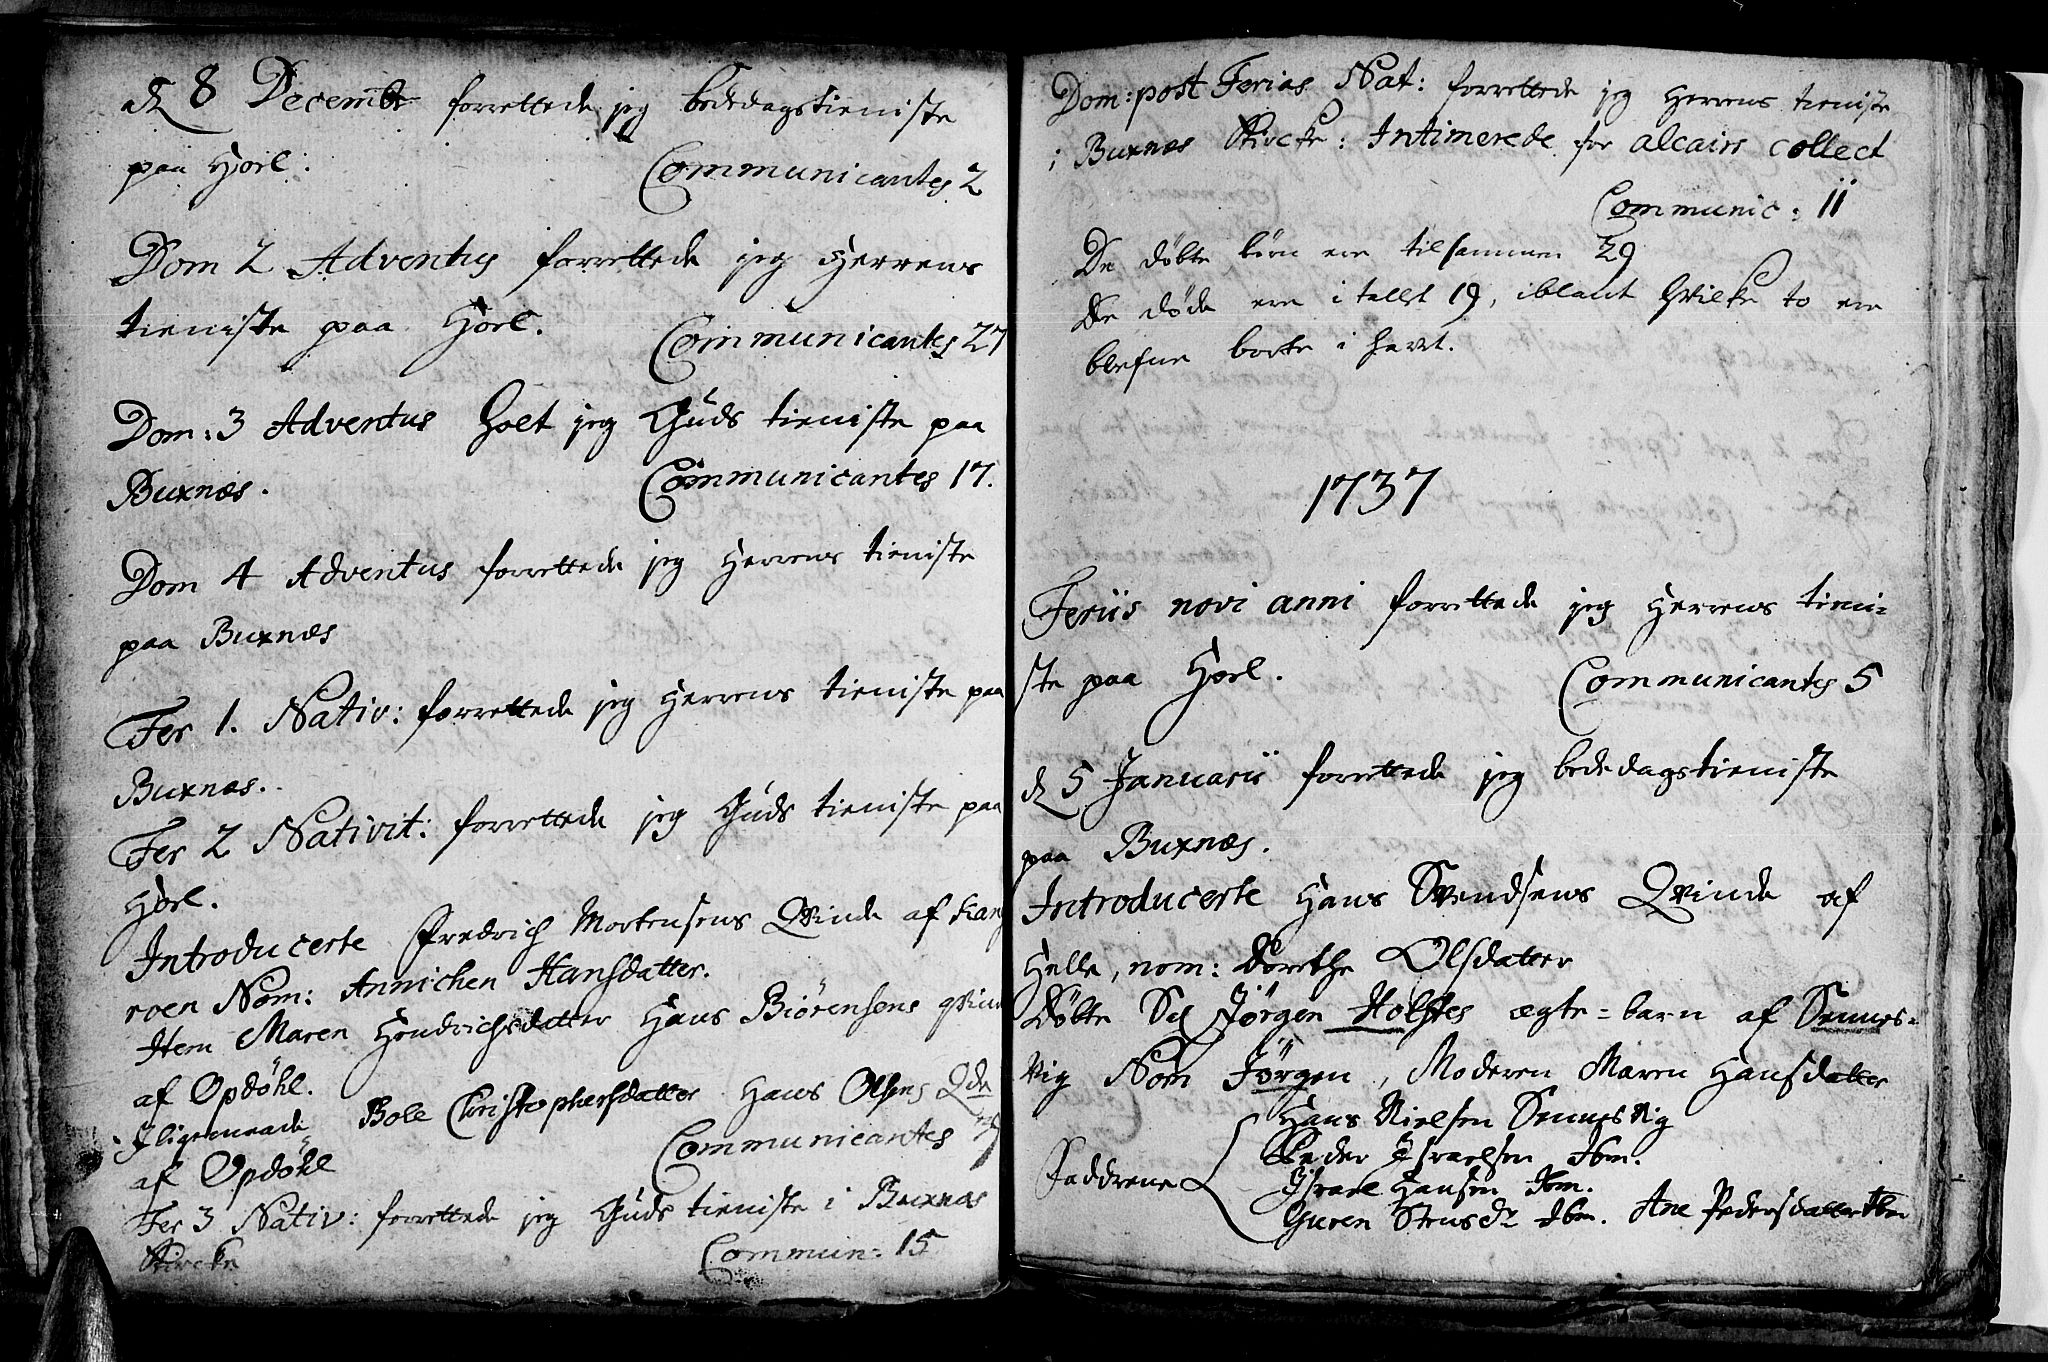 d 8 Decembr forrettede jeg bededagstieniste
paa Hoel: Communicantes 2
Dom 2 Adventus forrettede jeg Herrens
tieniste paa Hoel. Communicantes 27
Dom: 3 Adventus holt jeg Guds tieniste paa
Buxnæs. Communicantes 17.
Dom 4 Adventus forrettede jeg Herrens tieniste
paa Buxnæs
Fer 1. Nativ: forrettede jeg Herrens tieniste paa
Buxnæs.
Fer 2 Nativit: forrettede jeg Guds tieniste paa
Hoel.
Introducerte Fredrich Mortensens Qvinde af
roen Nom: Annichen Hansdatter.
Item Maren Hendrichsdatter Hans Biörensens qvin
af Opdöhl.
Iligemaade Bole Christophersdatter Hans Olsens Qde
af Opdöhl Communicantes
Fer 3 Nativ: forrettede jeg Guds tieniste i Buxnæs
Kircke Commun: 15
Dom: post Ferias Nat: forrettede jeg Herrens tieniste
i Buxnæs Kircke: Intimerede for alcairs collect
Communic: 11
De döbte börn ere tilsammen 29
De döde ere i tallet 19, iblant hvilke to ere
blefne borte i havet.
1737
Feriis novi anni forrettede jeg Herrens tieni=
ste paa Hoel. Communicantes 5
d 5 Januarii forrettede jeg bededagstieniste
paa Buxnæs.
Introducerte Hans Svendsens Qvinde af
Helle, nom: Dorethe Olsdatter
Döbte Sl Jörgen Holstes ægte=barn af Sennes=
vig Nom Jörgen, Moderen Maren Hansdatter
Hans Nielsen Sennesvig
Peder Israelsen Ibm.
Faddrene Israel Hansen Ibm.
Guren Sensdr Ibm. Ane Pedersdatter Ibm